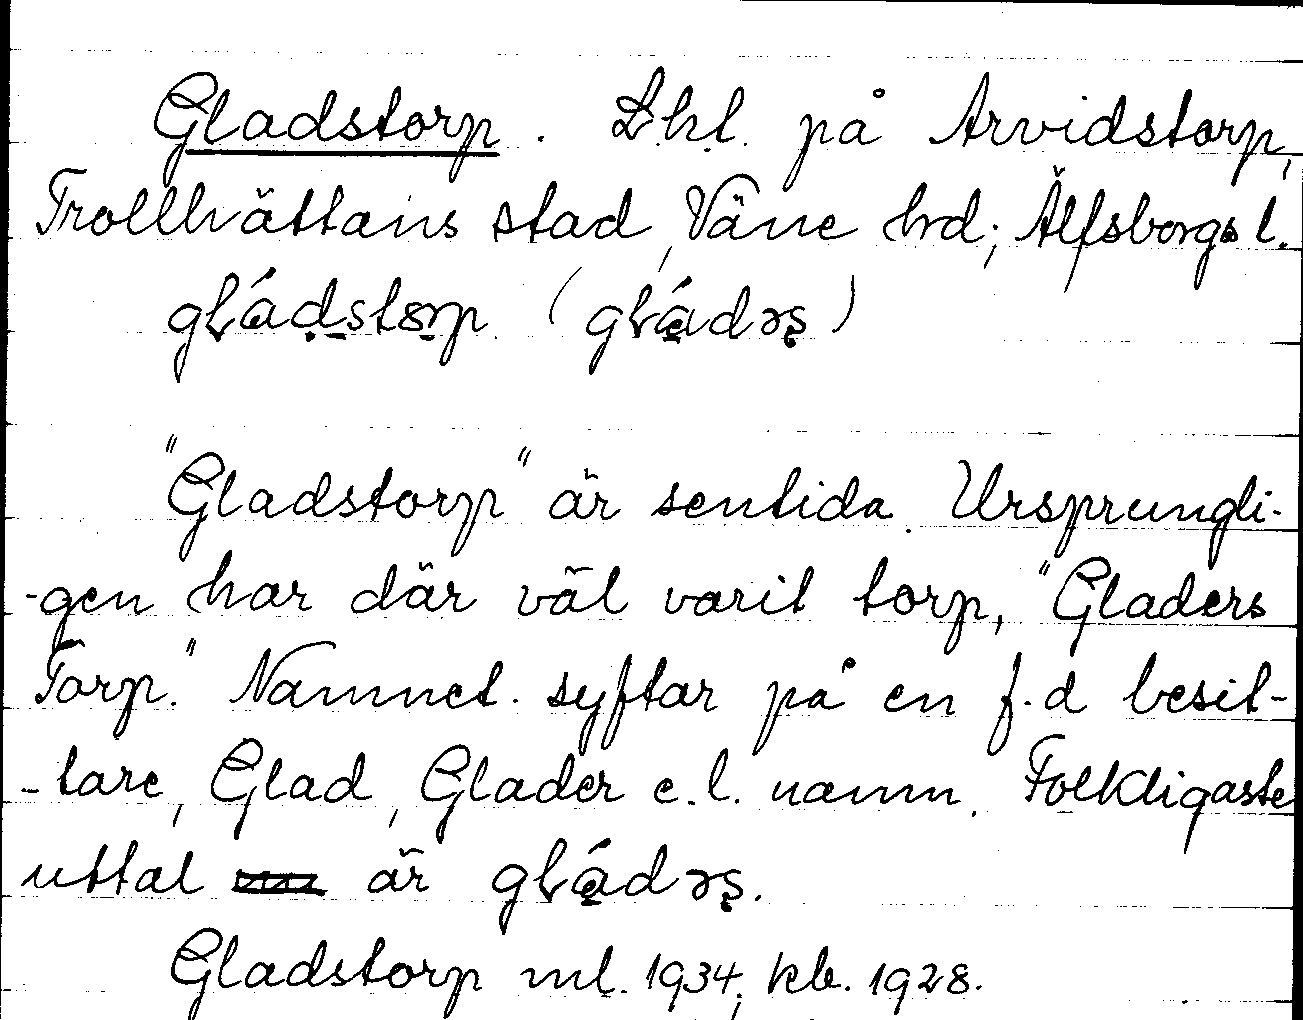 Gladstorp. Lht. på Arvidstorp,
Trollhättans stad, Väne hrd; Älfsborgs l.
gládstorp (gládəs)
"Gladstorp" är sentida. Ursprungli-
-gen har där väl varit torp, "Gladers
Torp." Namnet syftar på en f.d besit-
-tare, Glad, Glader e.l. namn. Folkligaste
uttal är gládəs.
Gladstorp ml. 1934; kb. 1928.